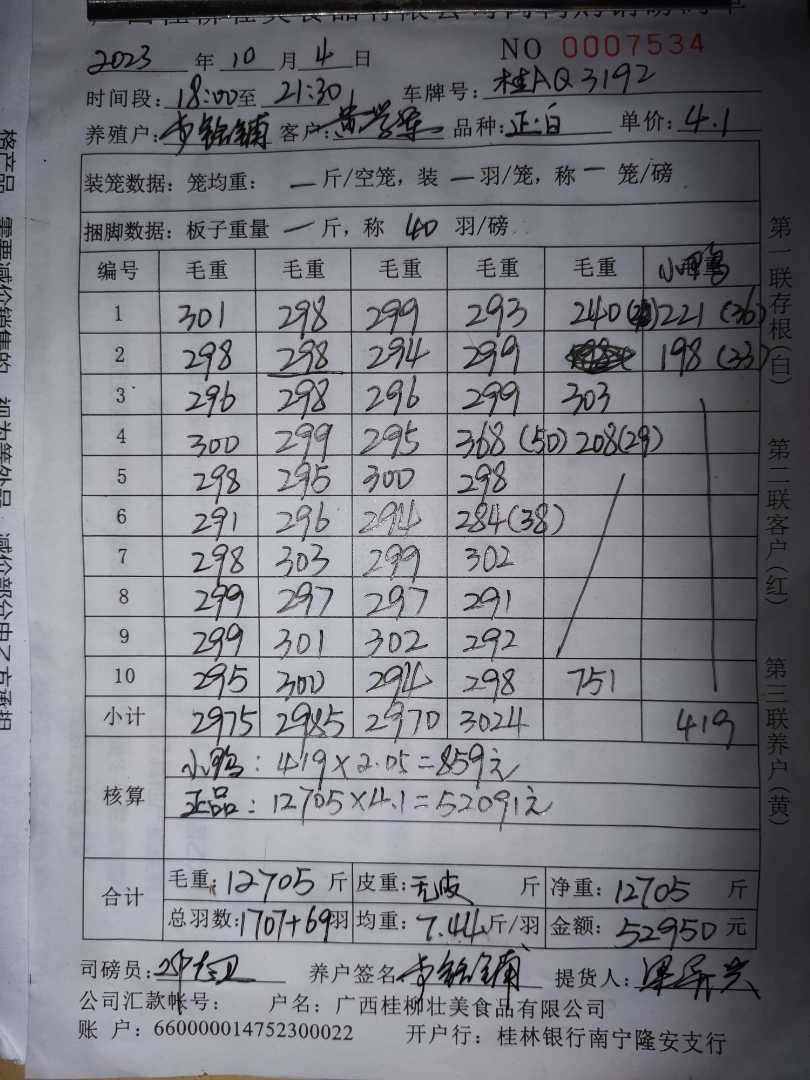 广西桂柳壮美食品有限公司
2023 年 10 月 4 日 NO 0007534
时间段: 18:00至 21:30 车牌号: 桂AQ3192
养殖户: 客户: 品种: 正白 单价: 4.1
装笼数据: 笼均重: 一 斤/空笼, 装 一 羽/笼, 称 一 笼/磅
捆脚数据: 板子重量 一 斤, 称 40 羽/磅
编号 毛重 毛重 毛重 毛重 毛重 小鸭
1 301 298 299 293 240 221 (36)
2 298 298 294 299 198 (33)
3 296 298 296 299 303
4 300 299 295 368 (50) 208(29)
5 298 295 300 298
6 291 296 294 284(38)
7 298 303 299 302
8 299 297 297 291
9 299 301 302 292
10 295 300 294 298 751
小计 2975 2985 2970 3024 419
核算 小鸭: 419×2.05=859元
正品: 12705×4.1=52091元
合计 毛重: 12705 斤 皮重: 无皮 斤 净重: 12705 斤
总羽数: 1707+69羽 均重: 7.44斤/羽 金额: 52950 元
司磅员: 养户签名 提货人:
公司汇款帐号: 户名: 广西桂柳壮美食品有限公司
账 户: 660000014752300022 开户行: 桂林银行南宁隆安支行
第一联存根(白) 第二联客户(红) 第三联养户(黄)